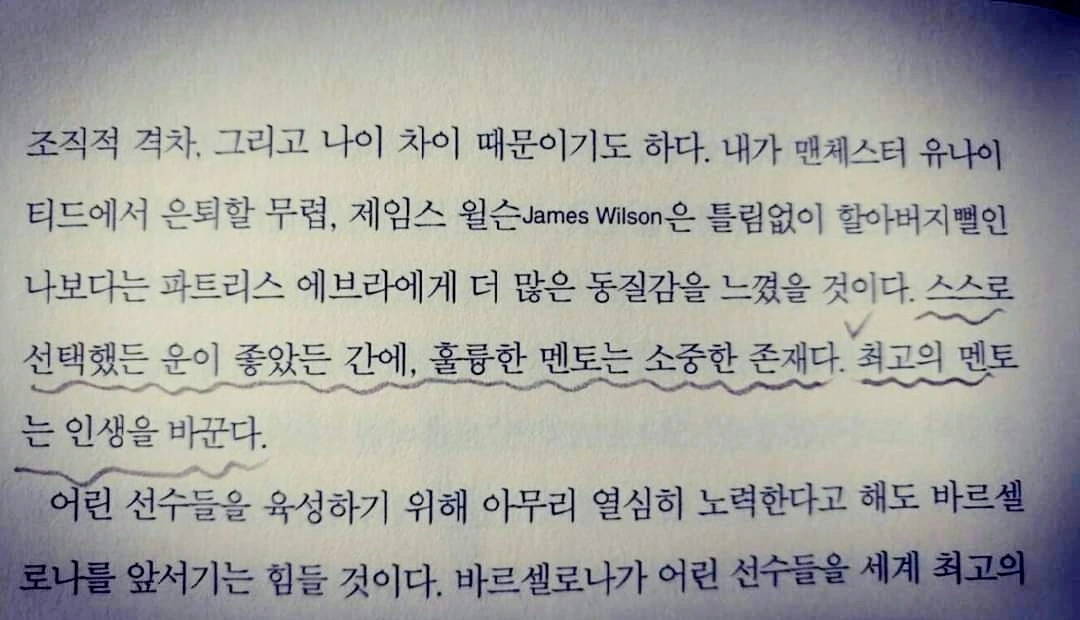 조직적 격차, 그리고 나이 차이 때문이기도 하다. 내가 맨체스터 유나이
티드에서 은퇴할 무렵, 제임스 윌슨James Wilson은 틀림없이 할아버지뻘인
나보다는 파트리스 에브라에게 더 많은 동질감을 느꼈을 것이다. 스스로
선택했든 운이 좋았든 간에, 훌륭한 멘토는 소중한 존재다. 최고의 멘토
는 인생을 바꾼다.
어린 선수들을 육성하기 위해 아무리 열심히 노력한다고 해도 바르셀
로나를 앞서기는 힘들 것이다. 바르셀로나가 어린 선수들을 세계 최고의